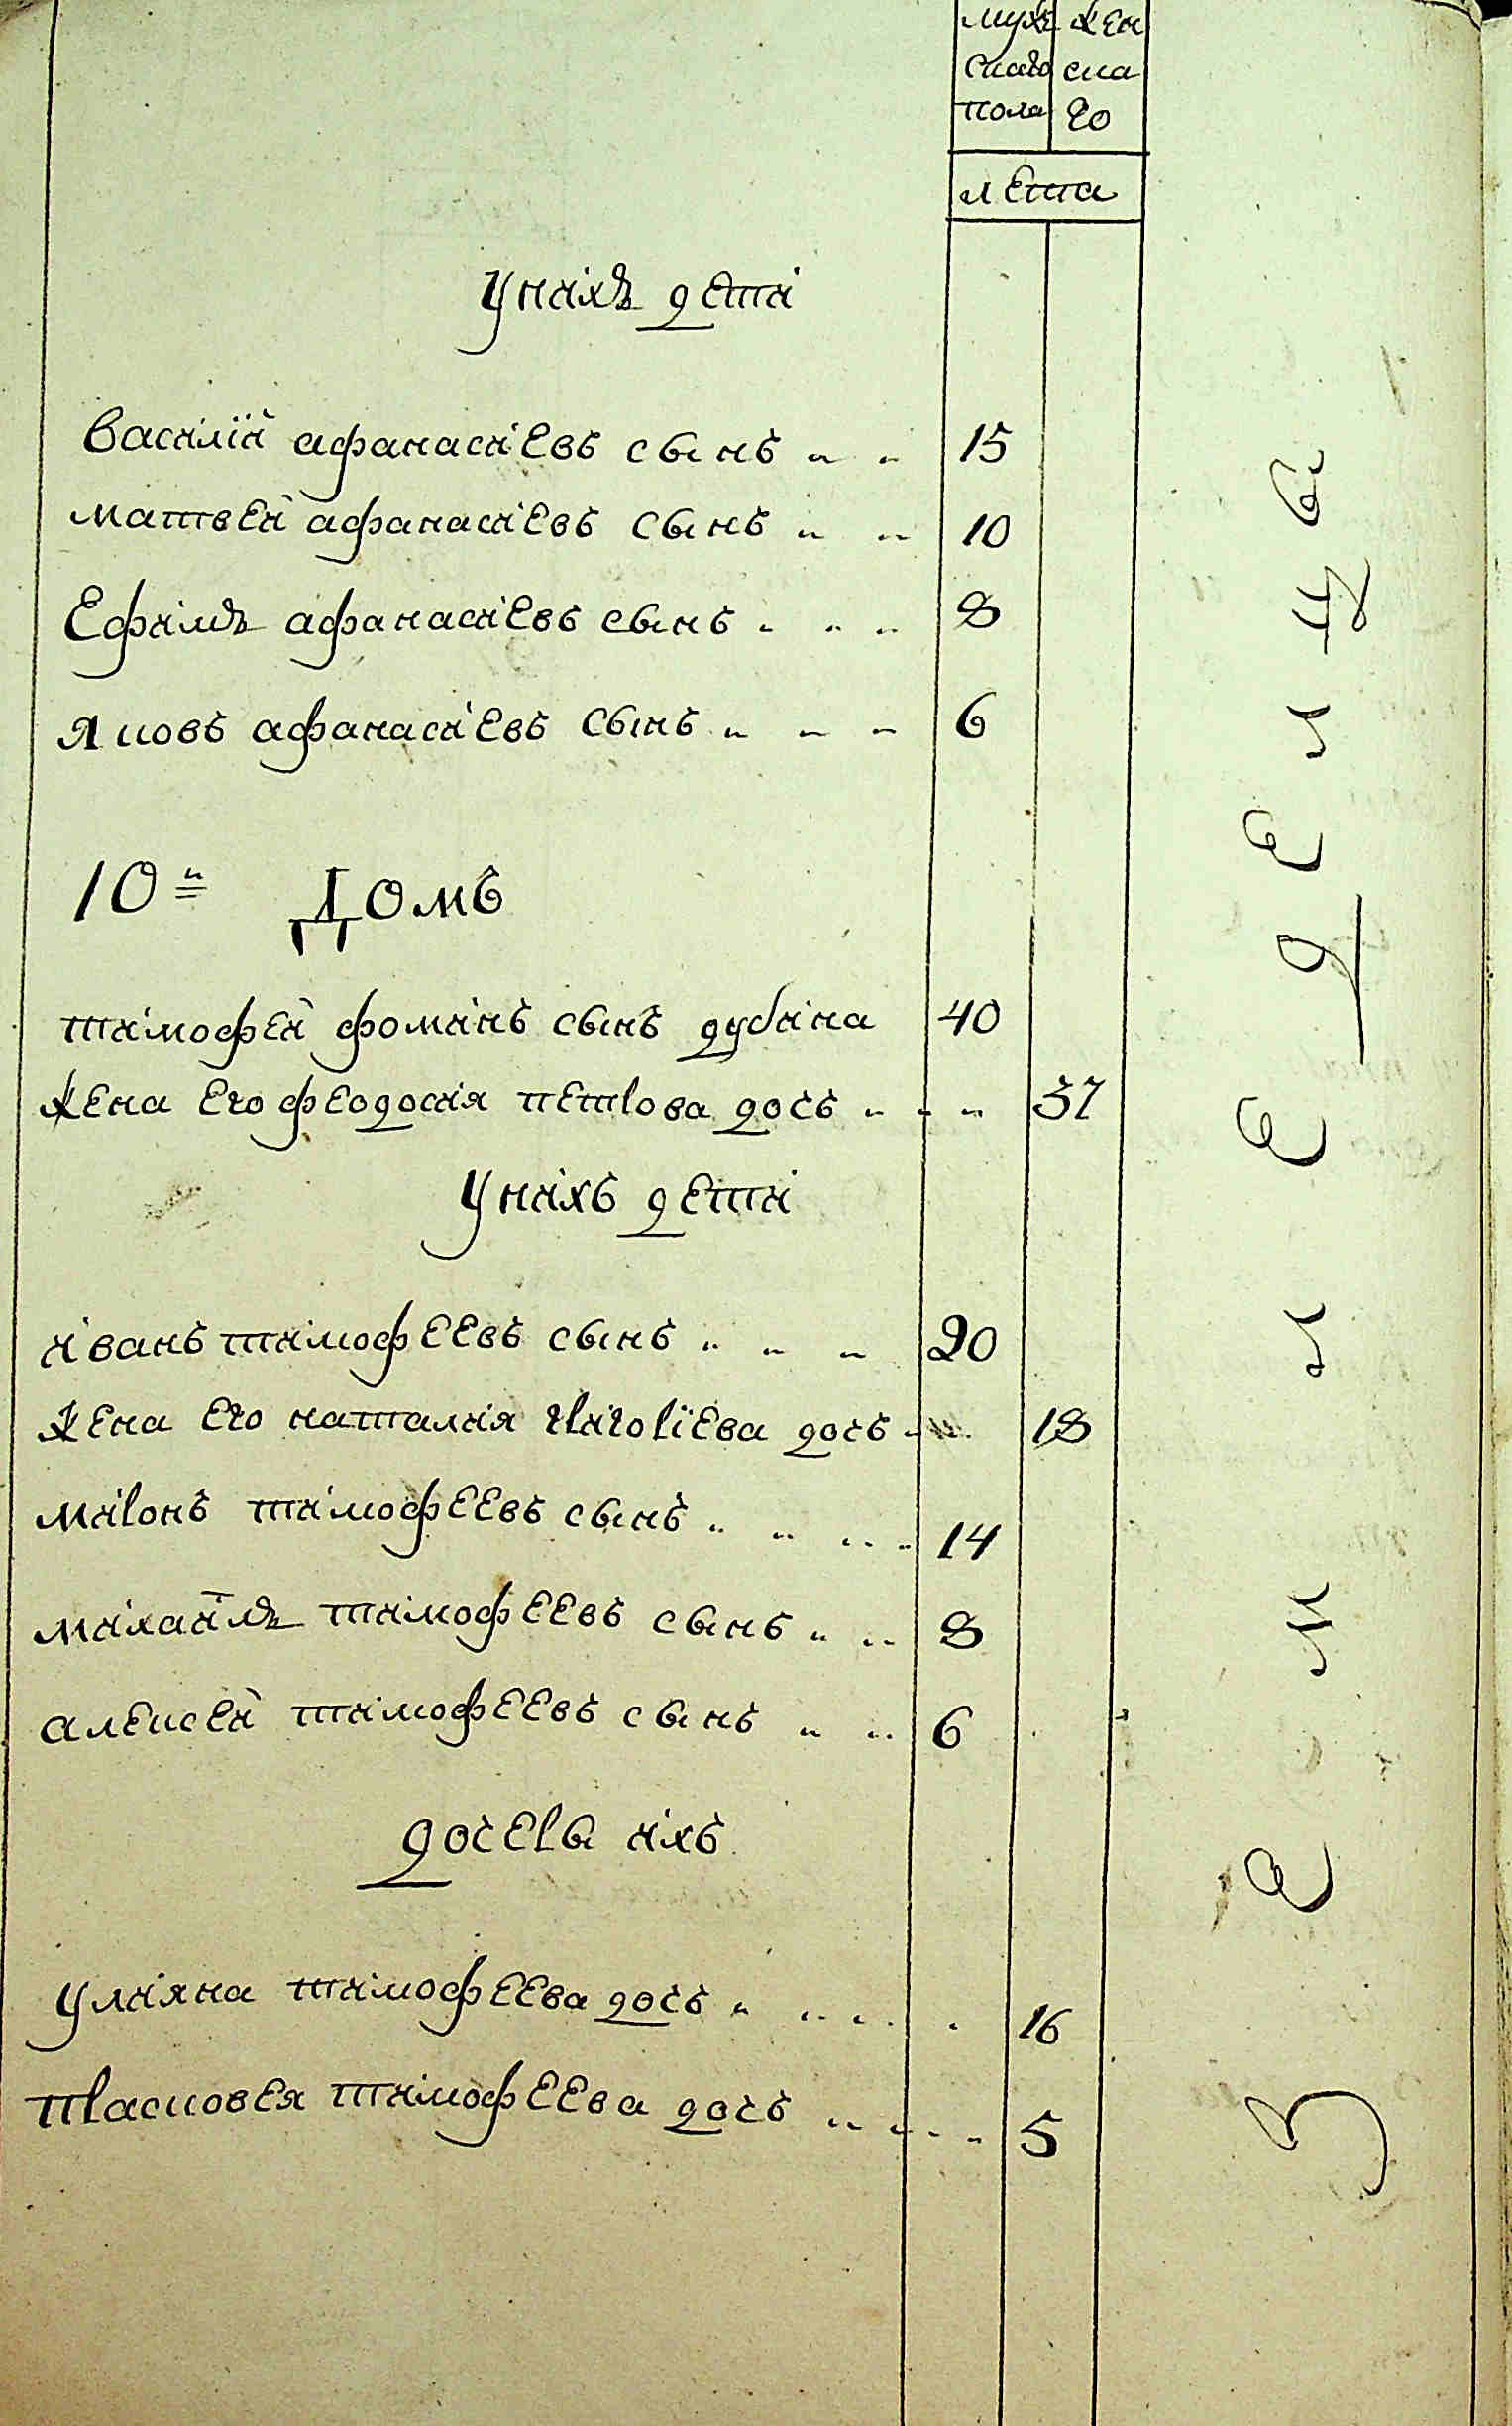 муже жен
скаго ска
пола го
лета
Унихъ дети
Василїй афанасиевъ сынъ 15
матвей афанасиевъ сынъ 10
Ефимъ афанасиевъ сынъ 8
яковъ афанасиевъ сынъ 6
10й Домъ
тимофей фоминъ сынъ дубина 40
жена его феодосия петрова дочь 37
Унихъ дети
иванъ тимофеевъ сынъ 20
жена его наталия григорїева дочь 18
миронъ тимофеевъ сынъ 14
михайлъ тимофеевъ сынъ 8
алексей тимофеевъ сынъ 6
дочеры ихъ
улияна тимофеева дочь 16
Прасковея тимофеева дочь 5
Земледелцы